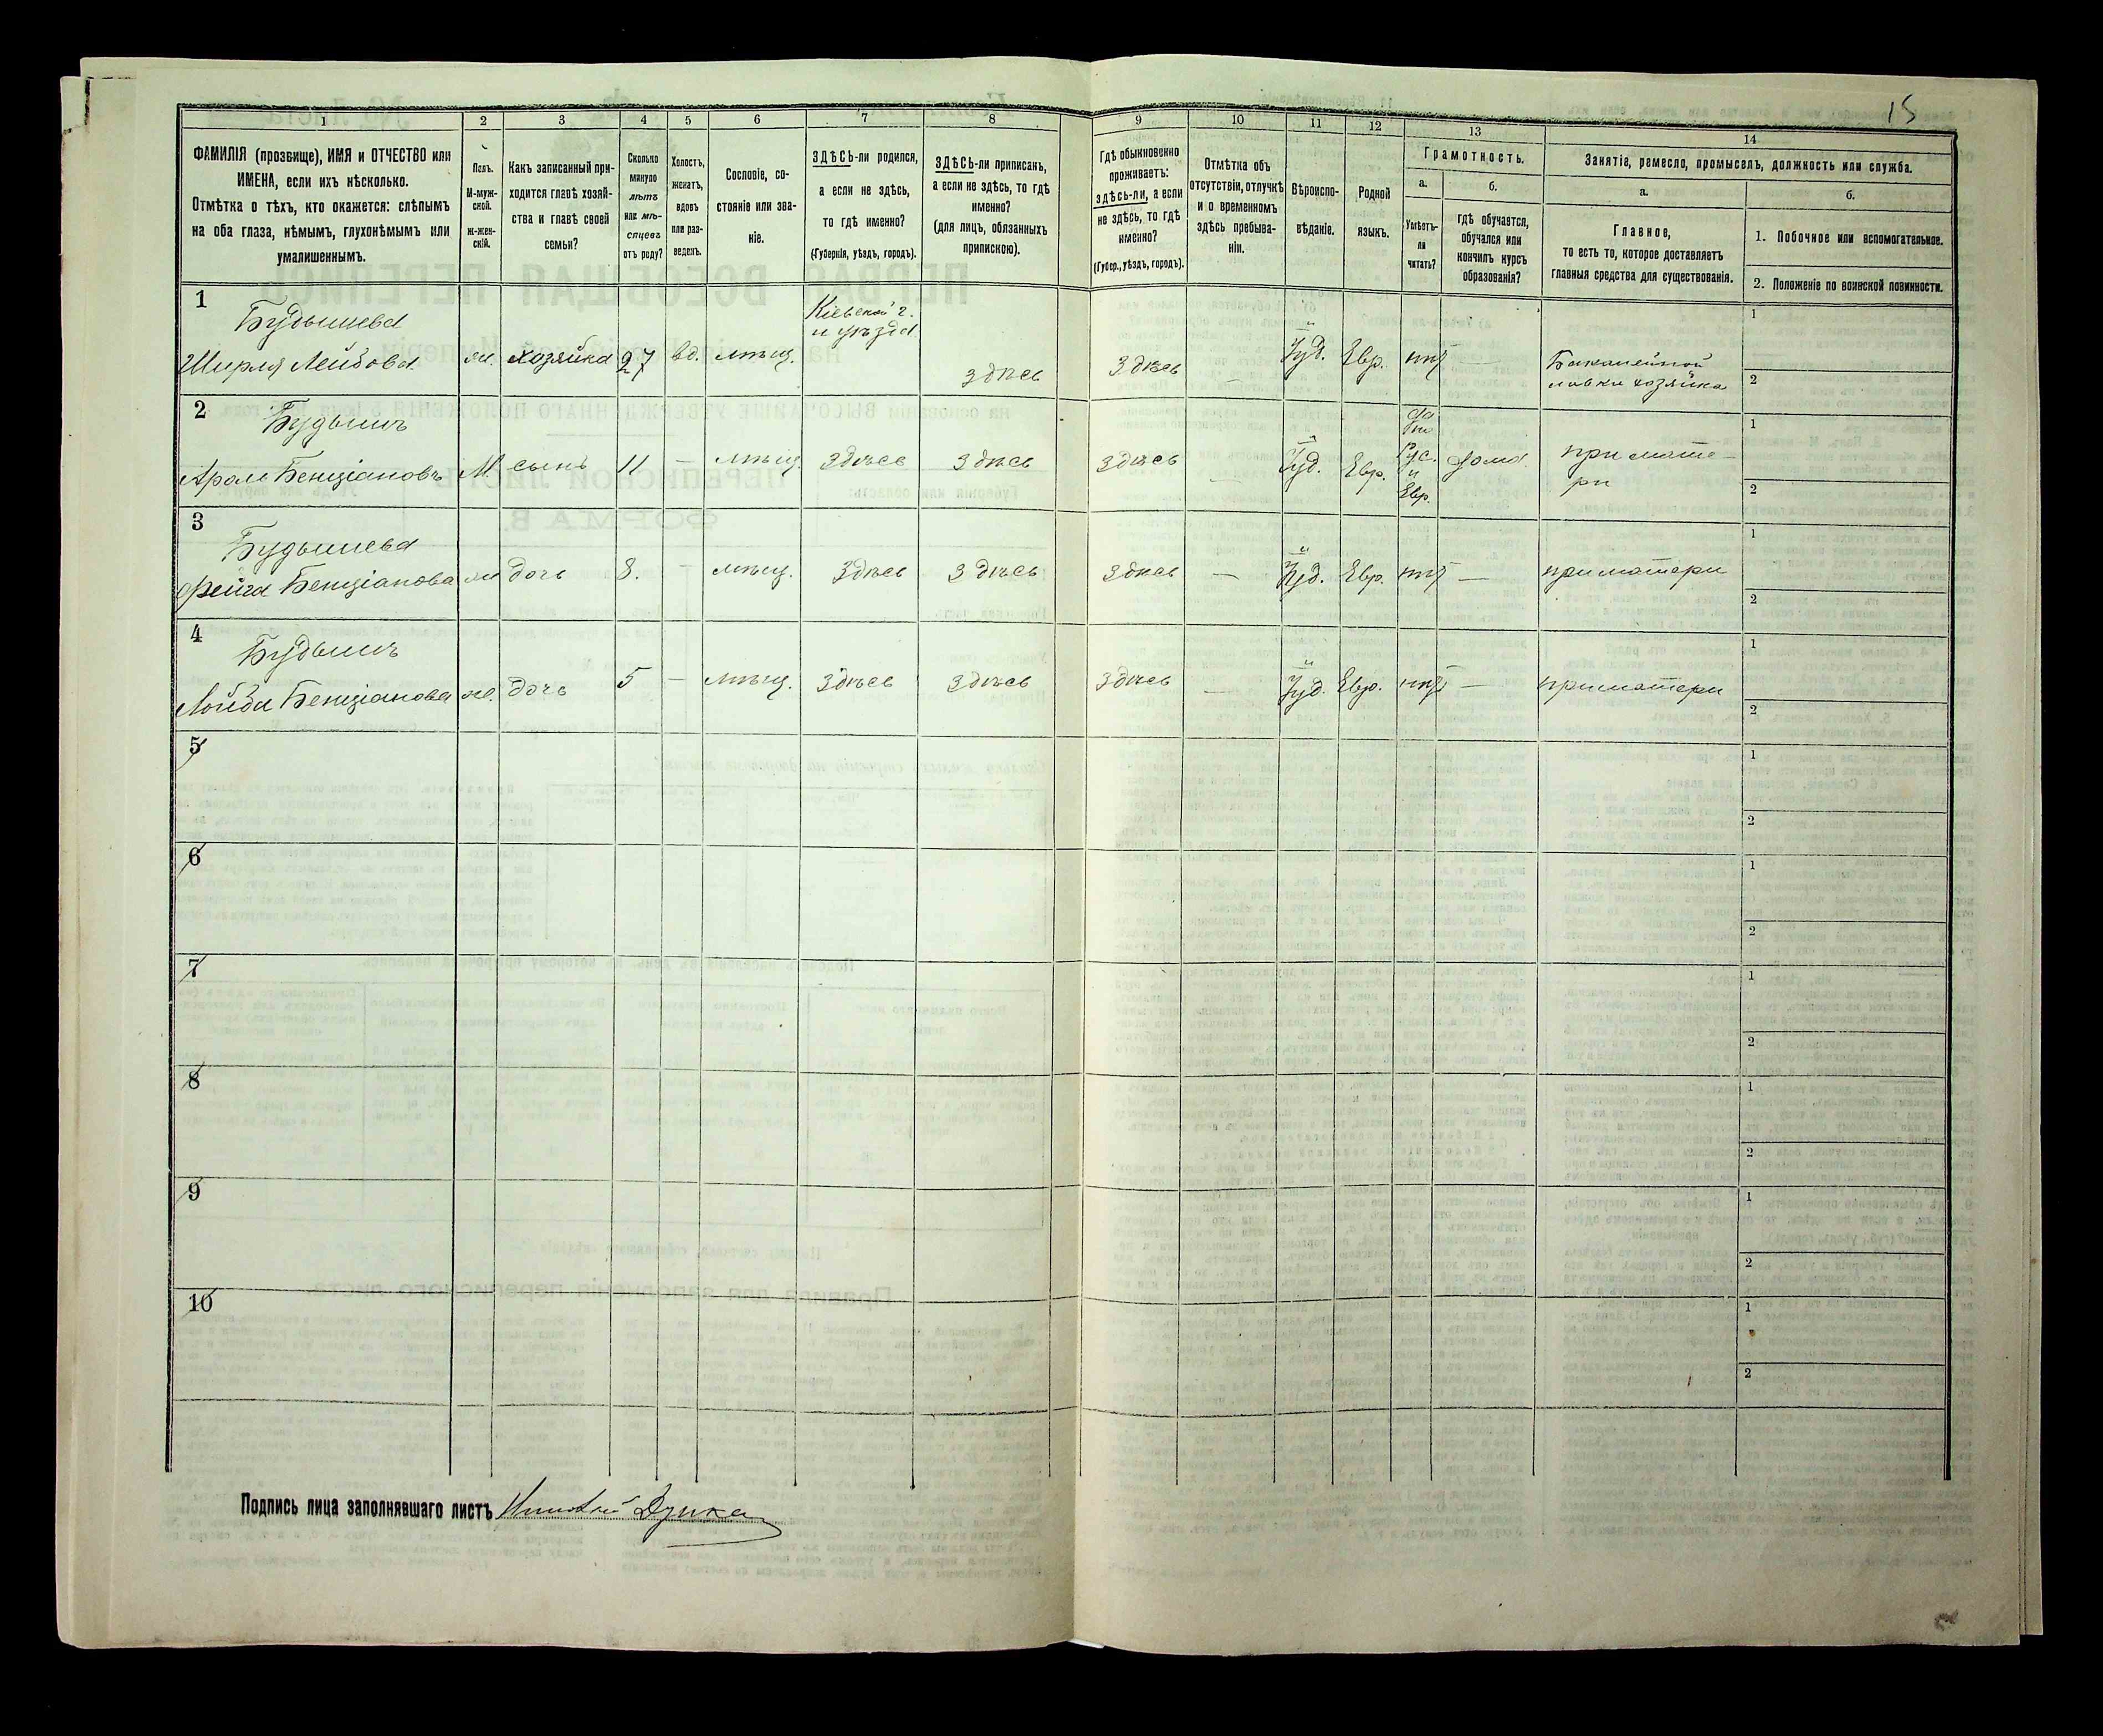 15
1 2 3 4 5 6 7 8 9 10 11 12 13 14
ФАМИЛІЯ (прозвище), ИМЯ и ОТЧЕСТВО или
ИМЕНА, если ихъ нѣсколько.
Отмѣтка о тѣхъ, кто окажется: слѣпымъ
на оба глаза, нѣмымъ, глухонѣмымъ или
умалишеннымъ.
Полъ.
М-муж-
ской.
Ж-жен-
скій.
Какъ записанный при-
ходится главѣ хозяй-
ства и главѣ своей
семьи?
Сколько
минуло
лѣтъ
или мѣ-
сяцевъ
отъ роду?
Холостъ,
женатъ,
вдовъ
или раз-
веденъ.
Сословіе, со-
стояніе или зва-
ніе.
ЗДѢСЬ-ли родился,
а если не здѣсь,
то гдѣ именно?
(Губернія, уѣздъ, городъ).
ЗДѢСЬ-ли приписанъ,
а если не здѣсь, то гдѣ
именно?
(для лицъ, обязанныхъ
припискою).
Гдѣ обыкновенно
проживаетъ:
здѣсь-ли, а если
не здѣсь, то гдѣ
именно?
(Губер., уѣздъ, городъ).
Отмѣтка объ
отсутствіи, отлучкѣ
и о временномъ
здѣсь пребыва-
ніи.
Вѣроиспо-
вѣданіе.
Родной
языкъ.
Грамотность.
а.
Умѣетъ-
ли
читать?
б.
гдѣ обучается,
обучался или
кончилъ курсъ
образованія?
Занятіе, ремесло, промыселъ, должность или служба.
а.
Главное,
то есть то, которое доставляетъ
главныя средства для существованія.
б.
1. Побочное или вспомогательное.
2. Положеніе по воинской повинности.
1
Будышева
Ширля Лейбова
ж. хозяйка 27 вд. мѣщ.
Кіевской г.
и уѣзда
здѣсь
здѣсь
—
Іуд. Евр. нѣт —
Бакалейной
лавки хозяйка
1
2
2
Будышъ
Арон Бенціановъ
М. сынъ 11 — мѣщ. здѣсь здѣсь
здѣсь
—
Іуд. Евр.
да
по
Рус.
и
Евр.
дома
при мате-
ри
1
2
3
Будышева
Фейга Бенціанова
ж. дочь 8. — мѣщ. здѣсь здѣсь
здѣсь — Іуд. Евр. нѣт — при матери
1
2
4
Будышъ
Лойба Бенціанова
ж. дочь 5 — мѣщ. здѣсь здѣсь
здѣсь — Іуд. Евр. нѣт — при матери
1
2
5
1
2
6
1
2
7
1
2
8
1
2
9
1
2
10
1
2
Подпись лица заполнявшаго листъ